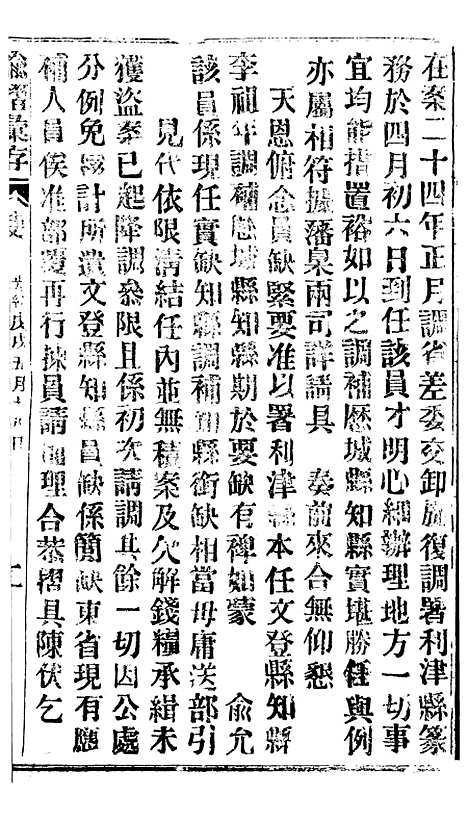 在案二十四年正月調省差委交卸旋復調署利津縣篆
務於四月初六日到任該員才明心細辦理地方一切事
宜均能措置裕如以之調補歷城縣知縣實堪勝任與例
亦屬相符據藩臬兩司詳請具　奏前來合無仰懇
天恩俯念員缺緊要准以署利津縣本任文登縣知縣
李祖年調補歷城縣知縣期於要缺有裨如蒙　俞允
該員係現任實缺知縣調補知縣銜缺相當毋庸送部引
見代依限清結任內並無積案及欠解錢糧承緝未
獲盜案已起降調叅限且係初次請調其餘一切因公處
分例免計所遺文登縣知縣員缺係簡缺東省現有應
補人員俟准部覆再行揀員請補理合恭摺具陳伏乞
諭摺彙存
光緒戊戌五月十日
二